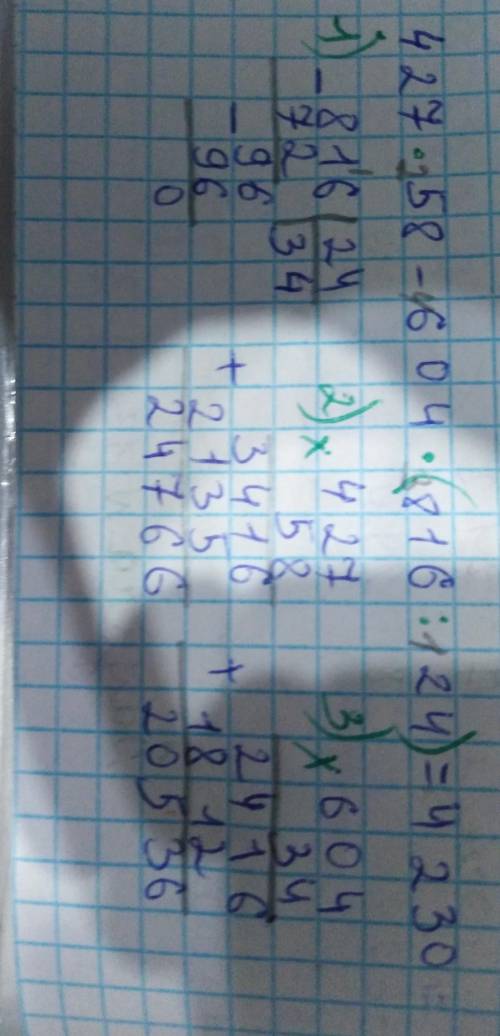 427·58-604·(816:24)=4230
1) -816|24
72 |34
-96
96
0
2) × 427
58
+ 3416
2135
24766
3) × 604
34
+ 2416
1812
20536